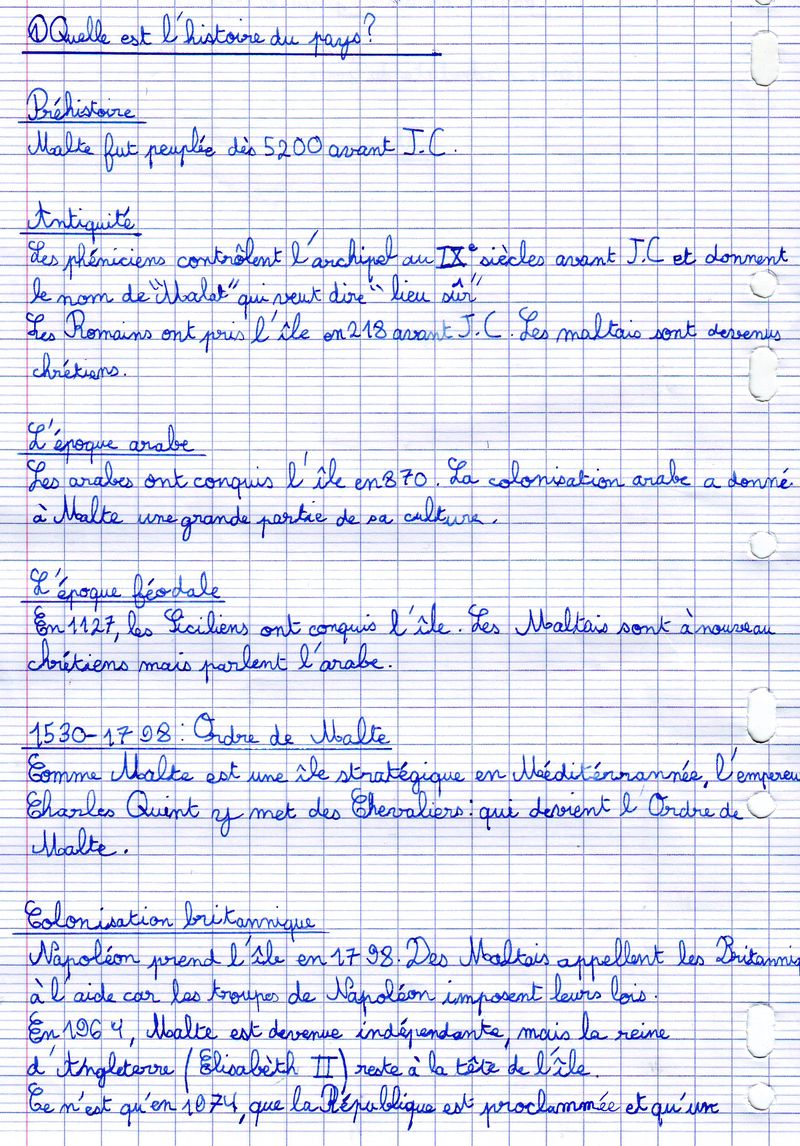 ① Quelle est l'histoire du pays?
Préhistoire
Malte fut peuplée dès 5200 avant J.C.
Antiquité
Les phéniciens contrôlent l'archipel au IXe siècles avant J.C et donnent
le nom de "Malat" qui veut dire "lieu sûr"
Les Romains ont pris l'île en 218 avant J.C. Les maltais sont devenus
chrétiens.
L'époque arabe
Les arabes ont conquis l'île en 870. La colonisation arabe a donné
à Malte une grande partie de sa culture.
L'époque féodale
En 1127, les Siciliens ont conquis l'île. Les Maltais sont à nouveau
chrétiens mais parlent l'arabe.
1530-1798: Ordre de Malte
Comme Malte est une île stratégique en Mééditérrannée, l'empereu
Charles Quint y met des Chevaliers: qui devient l'Ordre de
Malte.
Colonisation britannique
Napoléon prend l'île en 1798. Des Maltais appellent les Britanni
à l'aide car les troupes de Napoléon imposent leurs lois.
En 1964, Malte est devenue indépendante, mais la reine
d'Angleterre (Elisabèth II) reste à la tête de l'île.
Ce n'est qu'en 1974, que la République est proclammée et qu'un